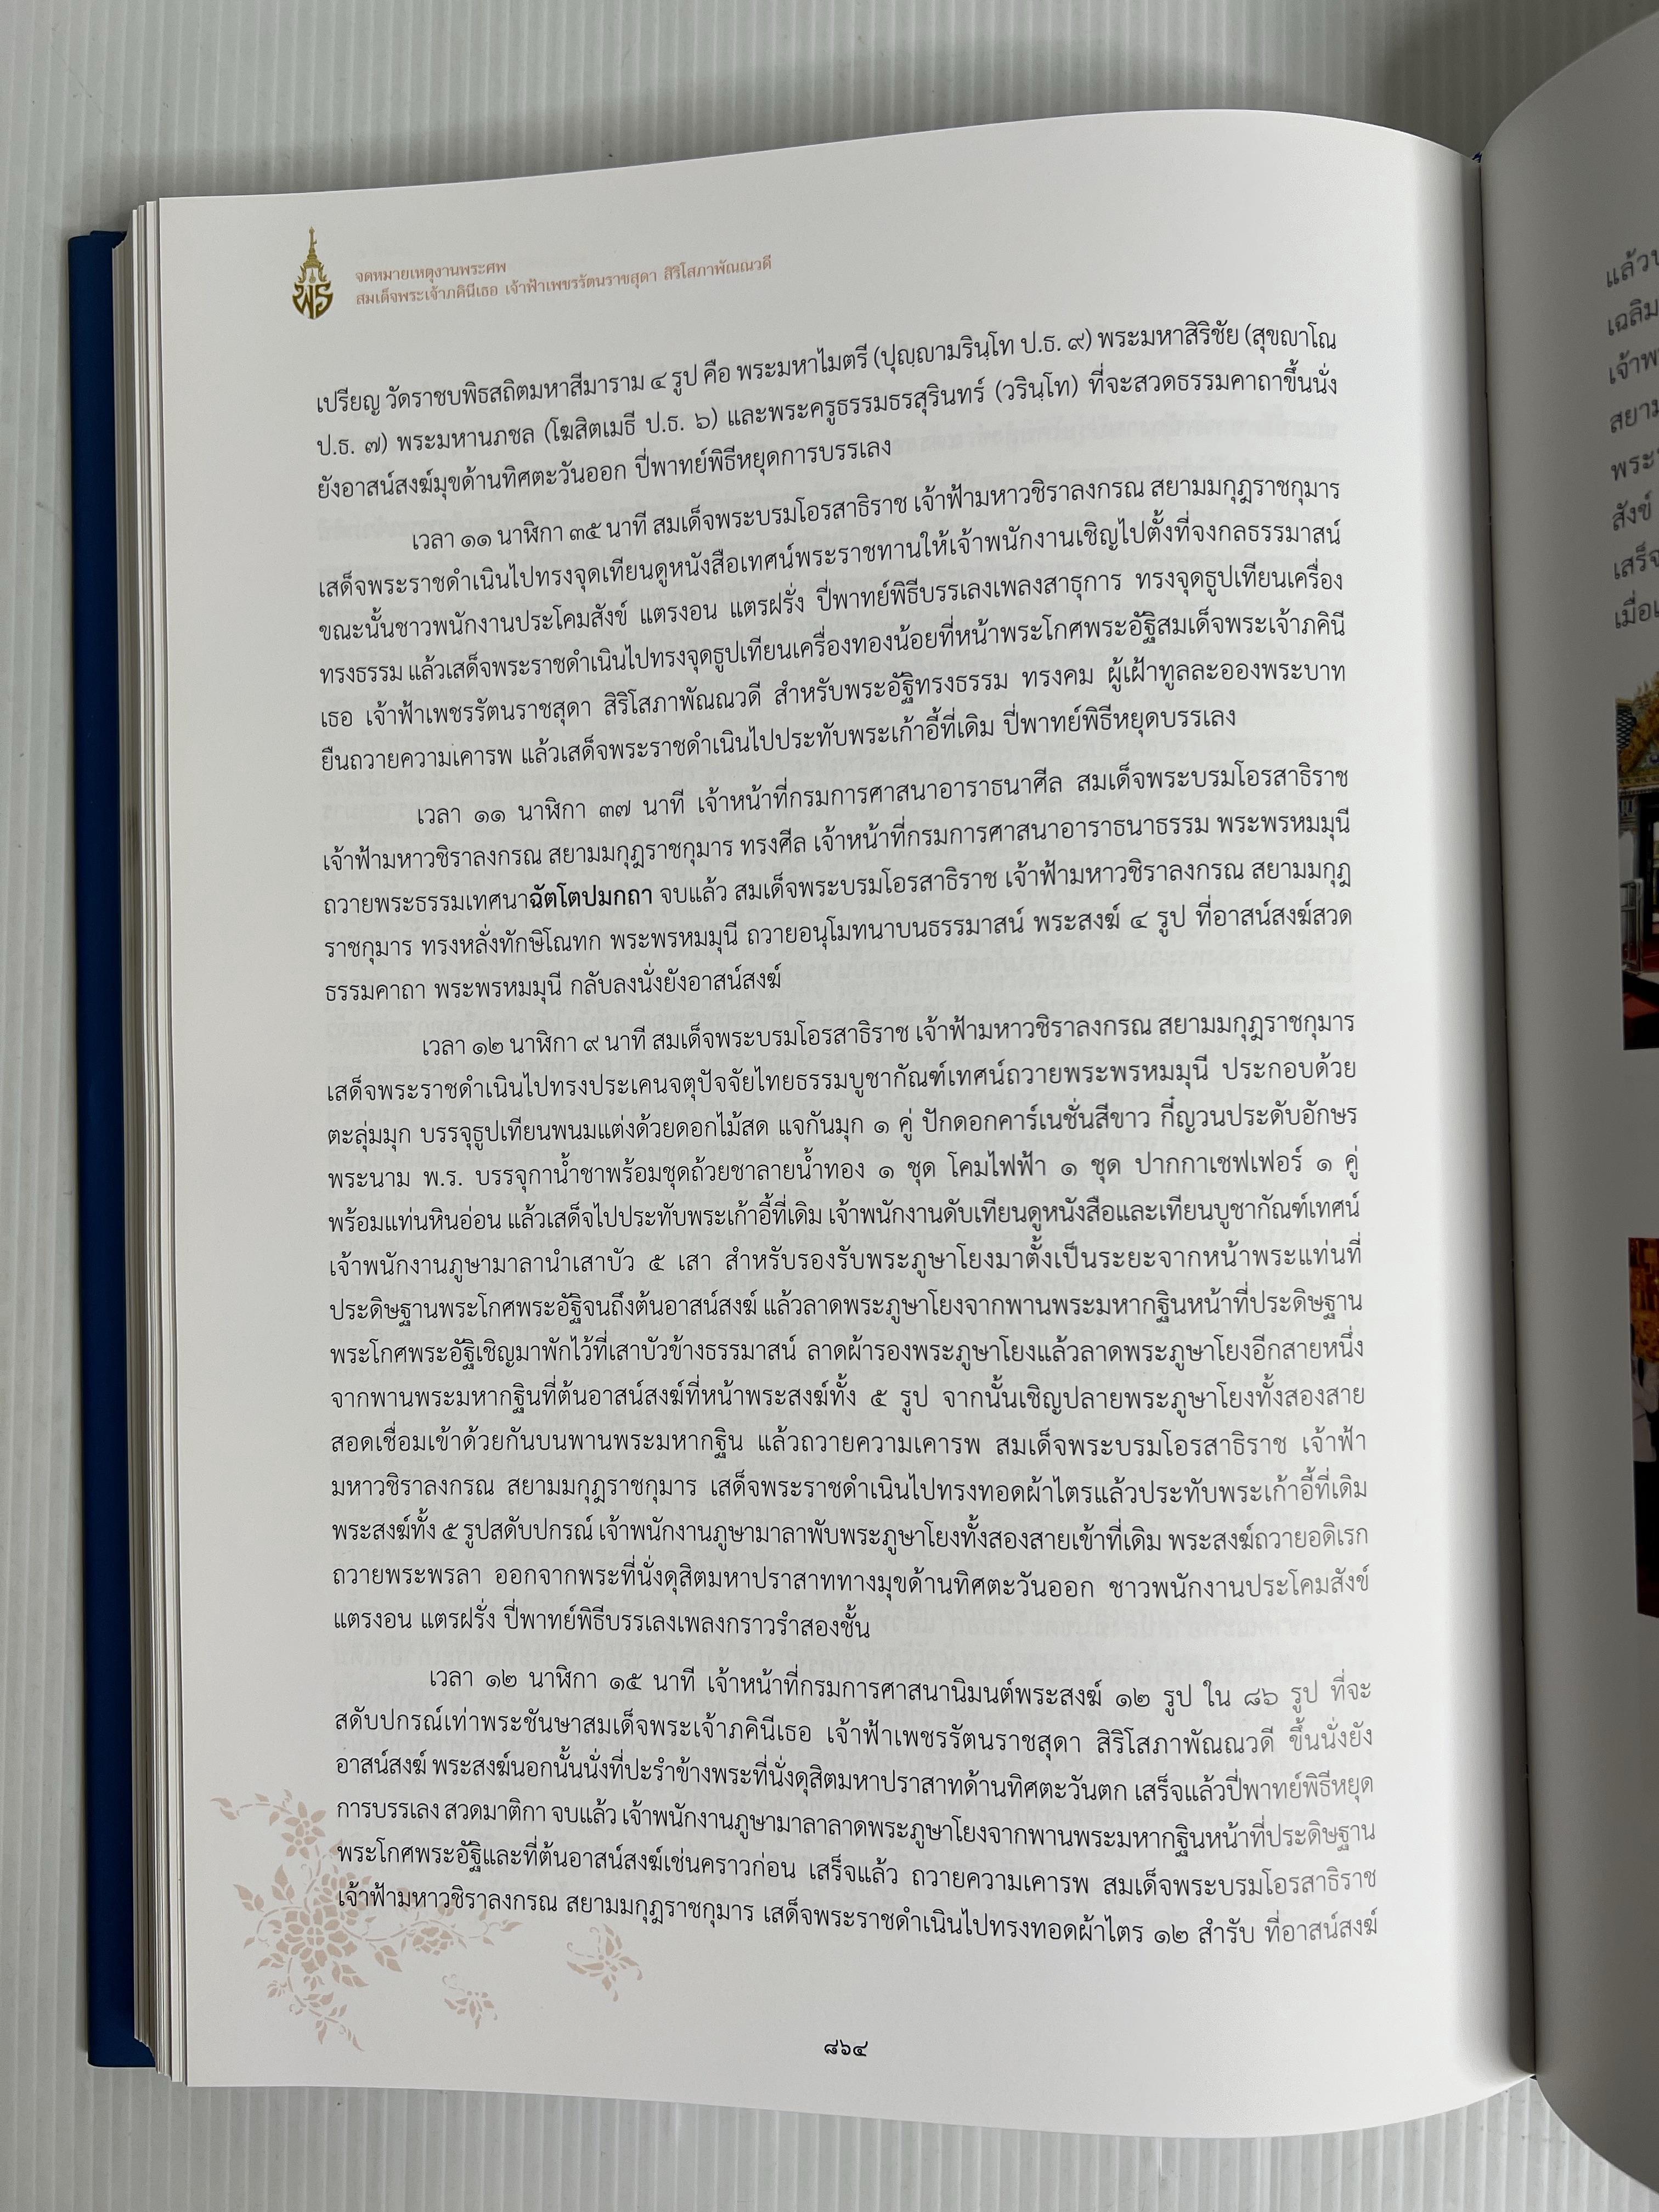 จดหมายเหตุงานพระศพ
สมเด็จพระเจ้าภคินีเธอ เจ้าฟ้าเพชรรัตนราชสุดา สิริโสภาพัณณวดี
เปรียญ วัดราชบพิธสถิตมหาสีมาราม ๔ รูป คือ พระมหาไมตรี (ปุญฺญามรินฺโท ป.ธ. ๙) พระมหาสิริชัย (สุขญาโณ
ป.ธ. ๗) พระมหานภชล (โฆสิตเมธี ป.ธ. ๖) และพระครูธรรมธรสุรินทร์ (วรินฺโท) ที่จะสวดธรรมคาถาขึ้นนั่ง
ยังอาสน์สงฆ์มุขด้านทิศตะวันออก ปี่พาทย์พิธีหยุดการบรรเลง
เวลา ๑๑ นาฬิกา ๓๕ นาที สมเด็จพระบรมโอรสาธิราช เจ้าฟ้ามหาวชิราลงกรณ สยามมกุฎราชกุมาร
เสด็จพระราชดำเนินไปทรงจุดเทียนดูหนังสือเทศน์พระราชทานให้เจ้าพนักงานเชิญไปตั้งที่จงกลธรรมาสน์
ขณะนั้นชาวพนักงานประโคมสังข์ แตรงอน แตรฝรั่ง ปี่พาทย์พิธีบรรเลงเพลงสาธุการ ทรงจุดธูปเทียนเครื่อง
ทรงธรรม แล้วเสด็จพระราชดำเนินไปทรงจุดธูปเทียนเครื่องทองน้อยที่หน้าพระโกศพระอัฐิสมเด็จพระเจ้าภคินี
เธอ เจ้าฟ้าเพชรรัตนราชสุดา สิริโสภาพัณณวดี สำหรับพระอัฐิทรงธรรม ทรงคม ผู้เฝ้าทูลละอองพระบาท
ยืนถวายความเคารพ แล้วเสด็จพระราชดำเนินไปประทับพระเก้าอี้ที่เดิม ปี่พาทย์พิธีหยุดบรรเลง
เวลา ๑๑ นาฬิกา ๓๗ นาที เจ้าหน้าที่กรมการศาสนาอาราธนาศีล สมเด็จพระบรมโอรสาธิราช
เจ้าฟ้ามหาวชิราลงกรณ สยามมกุฎราชกุมาร ทรงศีล เจ้าหน้าที่กรมการศาสนาอาราธนาธรรม พระพรหมมุนี
ถวายพระธรรมเทศนาฉัตโตปมกถา จบแล้ว สมเด็จพระบรมโอรสาธิราช เจ้าฟ้ามหาวชิราลงกรณ สยามมกุฎ
ราชกุมาร ทรงหลั่งทักษิโณทก พระพรหมมุนี ถวายอนุโมทนาบนธรรมาสน์ พระสงฆ์ ๔ รูป ที่อาสน์สงฆ์สวด
ธรรมคาถา พระพรหมมุนี กลับลงนั่งยังอาสน์สงฆ์
เวลา ๑๒ นาฬิกา ๙ นาที สมเด็จพระบรมโอรสาธิราช เจ้าฟ้ามหาวชิราลงกรณ สยามมกุฎราชกุมาร
เสด็จพระราชดำเนินไปทรงประเคนจตุปัจจัยไทยธรรมบูชากัณฑ์เทศน์ถวายพระพรหมมุนี ประกอบด้วย
ตะลุ่มมุก บรรจุธูปเทียนพนมแต่งด้วยดอกไม้สด แจกันมุก ๑ คู่ ปักดอกคาร์เนชั่นสีขาว กี๋ญวนประดับอักษร
พระนาม พ.ร. บรรจุกาน้ำชาพร้อมชุดถ้วยชาลายน้ำทอง ๑ ชุด โคมไฟฟ้า ๑ ชุด ปากกาเชฟเฟอร์ ๑ คู่
พร้อมแท่นหินอ่อน แล้วเสด็จไปประทับพระเก้าอี้ที่เดิม เจ้าพนักงานดับเทียนดูหนังสือและเทียนบูชากัณฑ์เทศน์
เจ้าพนักงานภูษามาลานำเสาบัว ๕ เสา สำหรับรองรับพระภูษาโยงมาตั้งเป็นระยะจากหน้าพระแท่นที่
ประดิษฐานพระโกศพระอัฐิจนถึงต้นอาสน์สงฆ์ แล้วลาดพระภูษาโยงจากพานพระมหากฐินหน้าที่ประดิษฐาน
พระโกศพระอัฐิเชิญมาพักไว้ที่เสาบัวข้างธรรมาสน์ ลาดผ้ารองพระภูษาโยงแล้วลาดพระภูษาโยงอีกสายหนึ่ง
จากพานพระมหากฐินที่ต้นอาสน์สงฆ์ที่หน้าพระสงฆ์ทั้ง ๕ รูป จากนั้นเชิญปลายพระภูษาโยงทั้งสองสาย
สอดเชื่อมเข้าด้วยกันบนพานพระมหากฐิน แล้วถวายความเคารพ สมเด็จพระบรมโอรสาธิราช เจ้าฟ้า
มหาวชิราลงกรณ สยามมกุฎราชกุมาร เสด็จพระราชดำเนินไปทรงทอดผ้าไตรแล้วประทับพระเก้าอี้ที่เดิม
พระสงฆ์ทั้ง ๕ รูปสดับปกรณ์ เจ้าพนักงานภูษามาลาพับพระภูษาโยงทั้งสองสายเข้าที่เดิม พระสงฆ์ถวายอดิเรก
ถวายพระพรลา ออกจากพระที่นั่งดุสิตมหาปราสาททางมุขด้านทิศตะวันออก ชาวพนักงานประโคมสังข์
แตรงอน แตรฝรั่ง ปี่พาทย์พิธีบรรเลงเพลงกราวรำสองชั้น
เวลา ๑๒ นาฬิกา ๑๕ นาที เจ้าหน้าที่กรมการศาสนานิมนต์พระสงฆ์ ๑๒ รูป ใน ๘๖ รูป ที่จะ
สดับปกรณ์เท่าพระชันษาสมเด็จพระเจ้าภคินีเธอ เจ้าฟ้าเพชรรัตนราชสุดา สิริโสภาพัณณวดี ขึ้นนั่งยัง
อาสน์สงฆ์ พระสงฆ์นอกนั้นนั่งที่ปะรำข้างพระที่นั่งดุสิตมหาปราสาทด้านทิศตะวันตก เสร็จแล้วปี่พาทย์พิธีหยุด
การบรรเลง สวดมาติกา จบแล้ว เจ้าพนักงานภูษามาลาลาดพระภูษาโยงจากพานพระมหากฐินหน้าที่ประดิษฐาน
พระโกศพระอัฐิและที่ต้นอาสน์สงฆ์เช่นคราวก่อน เสร็จแล้ว ถวายความเคารพ สมเด็จพระบรมโอรสาธิราช
เจ้าฟ้ามหาวชิราลงกรณ สยามมกุฎราชกุมาร เสด็จพระราชดำเนินไปทรงทอดผ้าไตร ๑๒ สำรับ ที่อาสน์สงฆ์
๘๖๔